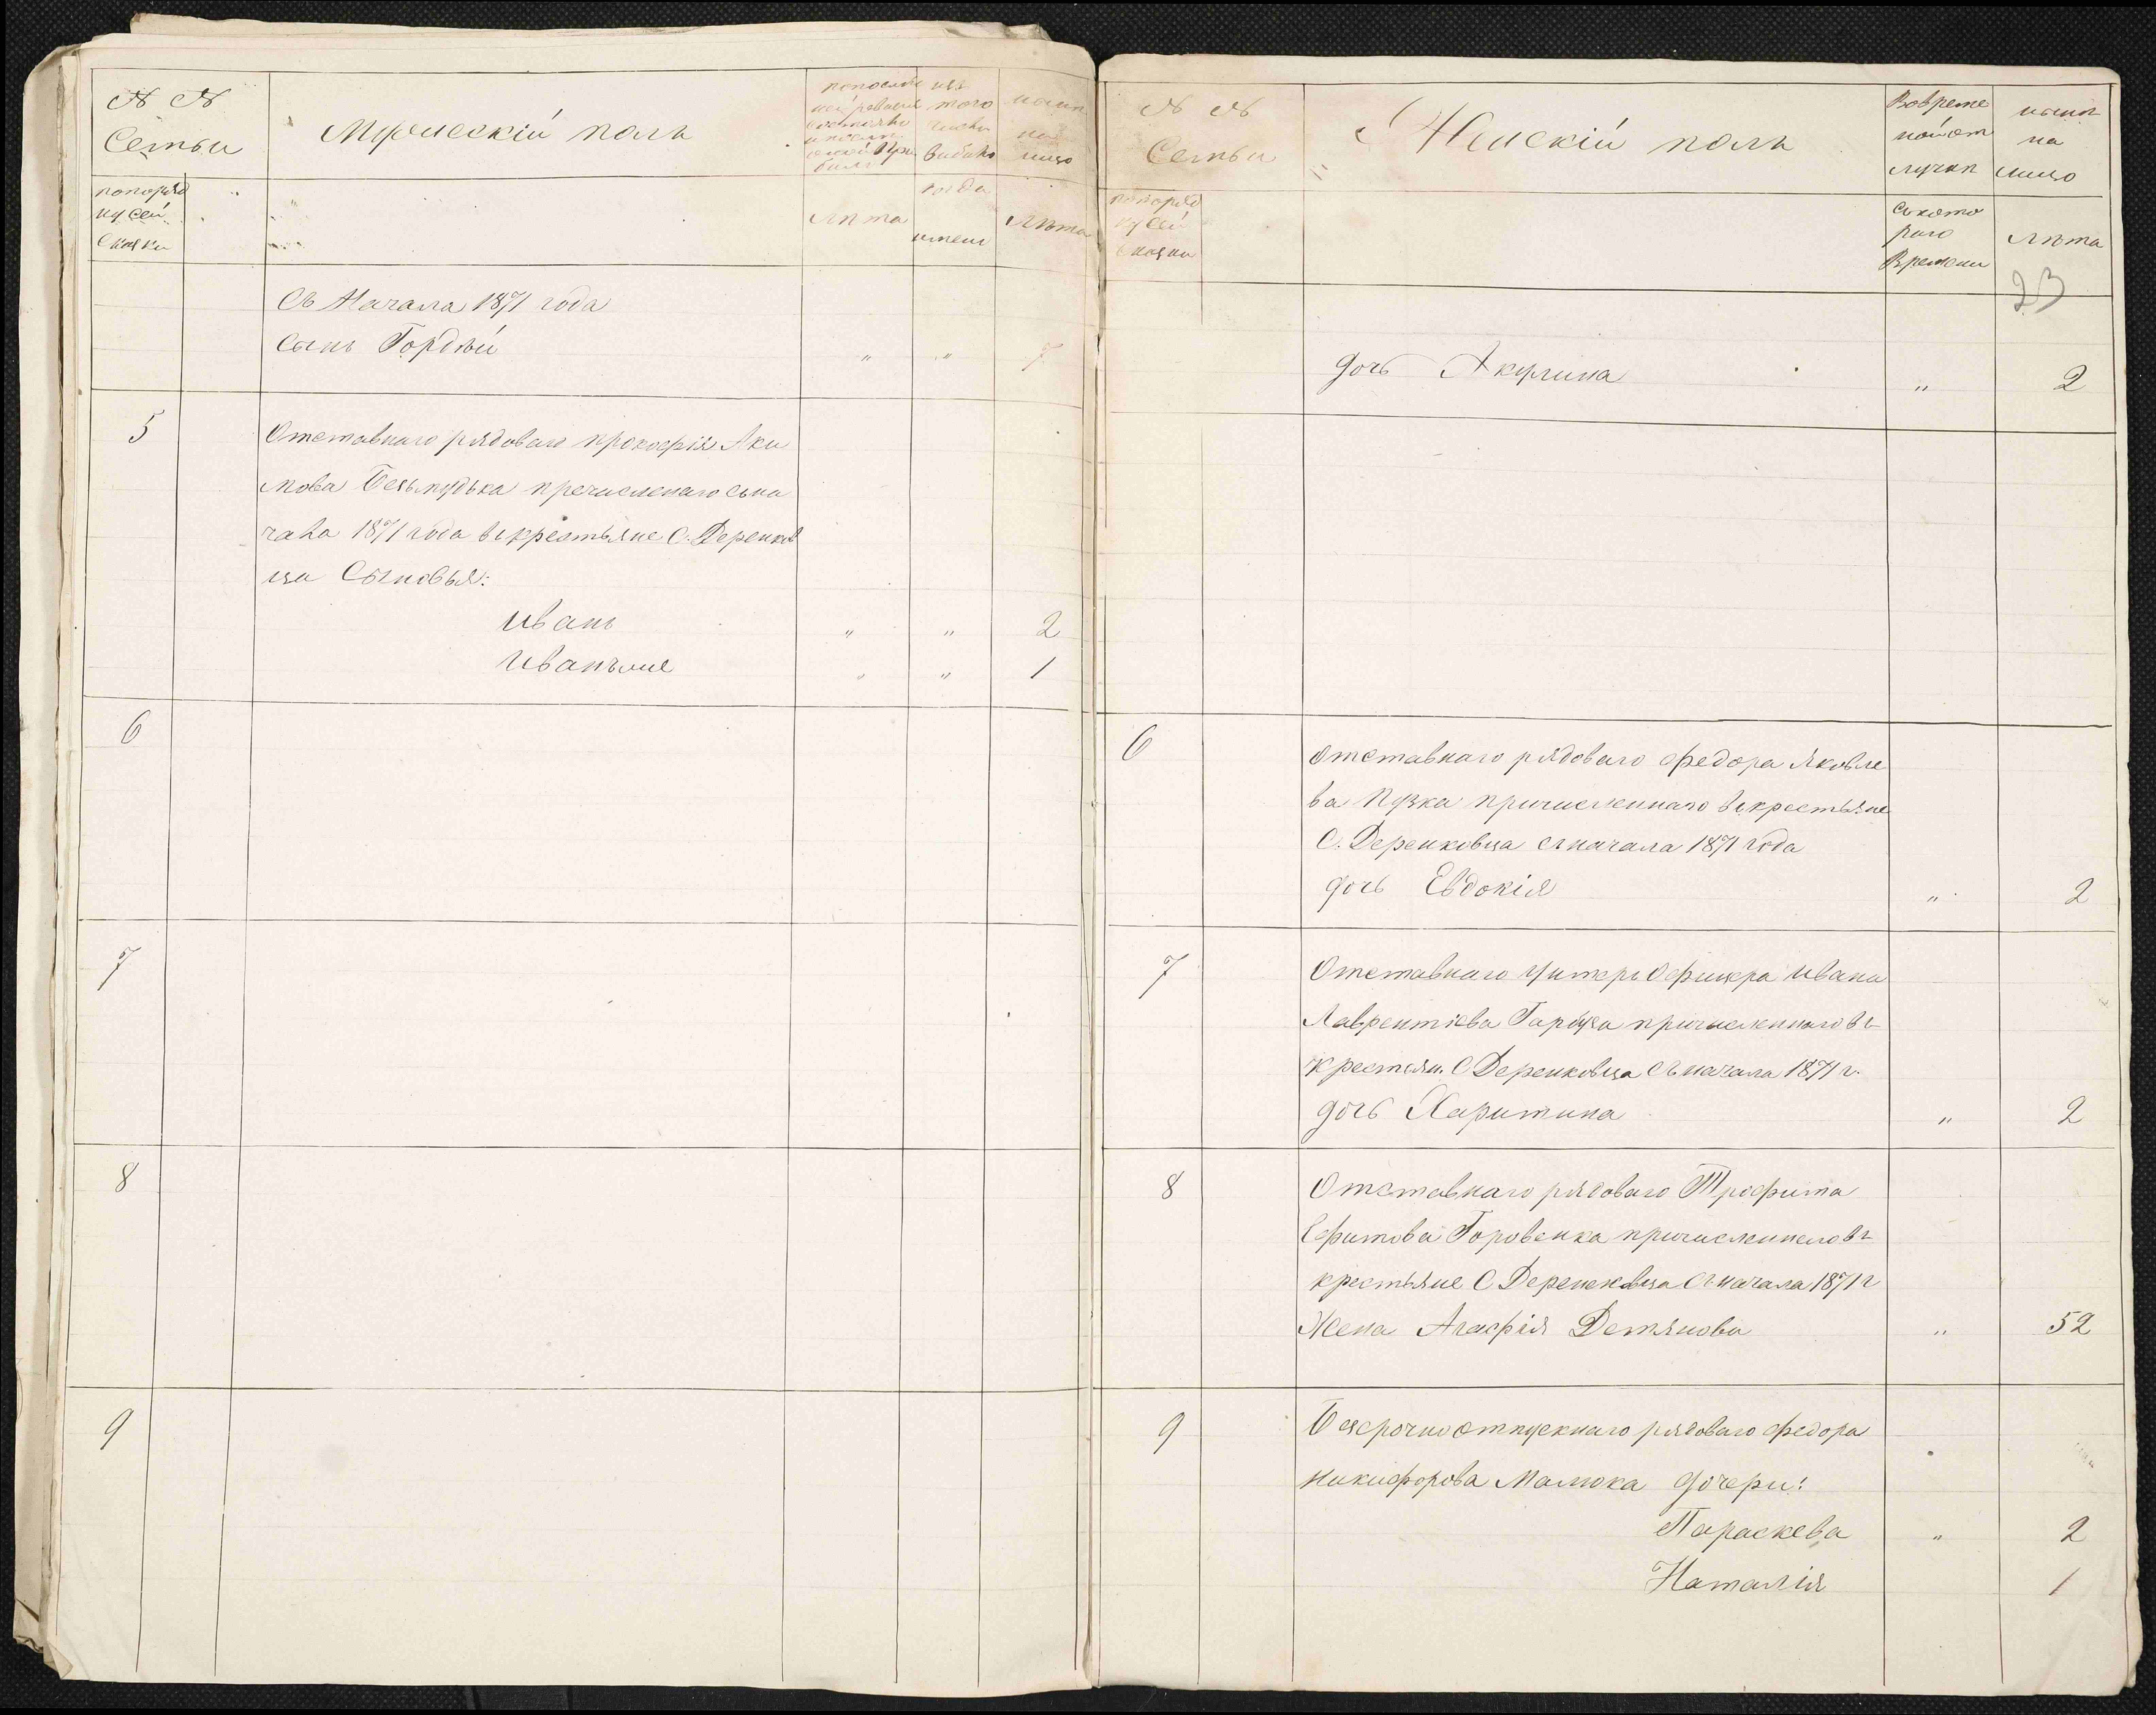 № №
Семьи
Мужескій полъ
попослѣд
ней ревизіи
состояло
и послѣ
оной при
было
изъ
того
числа
выбыло
нынѣ
на
лицо
поповряд
ку сей
скаски
Лѣта
когда
именно
Лѣта
Съ Начала 1871 года
Сынъ Гордѣй " " 7
5
Отставнаго рядоваго прокофія Аки
мова Безьмудька пречисленаго сьна
чала 1871 года вькрестьяне С. Деренков
ца Сыновья:
Иванъ " " 2
Иванъ же " " 1
6
7
8
9
№ №
Семьи
Женскій полъ
Вовреме
ной от
лучкѣ
нынѣ
на
лицо
попоряд
ку сей
скаски
Съкото
раго
Времени
Лѣта
23
дочь Акулина " 2
6
Отставнаго рядоваго Федора Яковле
ва Пузка причисленнаго вькрестьяне
С. Деренковца сначала 1871 года
дочь Евдокія " 2
7
Отставнаго Унтеръ Офицера Ивана
Лаврентіева Гарцуа причисленнаго въ
крестьян. С Деренковца Съ начала 1871 г.
дочь Харитина " 2
8
Отставнаго рядоваго Трофима
Ефимова Горовенка причисленнаго въ
крестьяне С Деренковца Съ начала 1871 г
Жена Агафія Демянова " 52
9
Безсрочно отпускнаго рядоваго Федора
Никифорова Малюка дочери:
Параскева " 2
Наталія 1